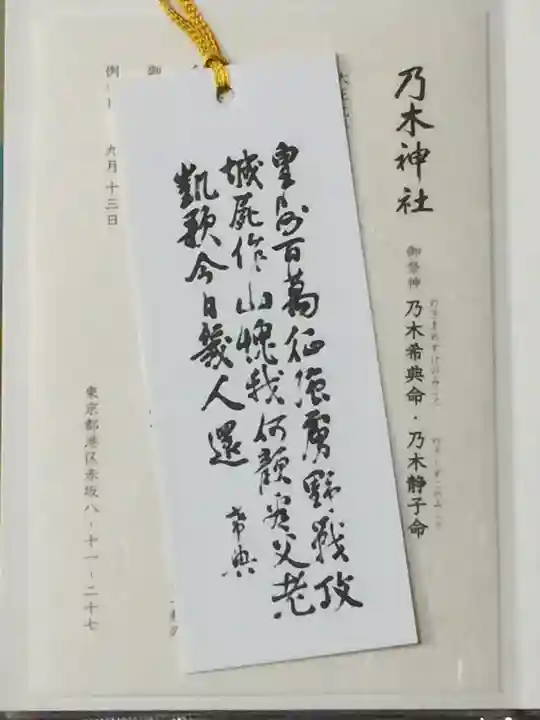 乃木神社
御祭神 乃木希典命・乃木静子命
のぎまれすけのみこと
皇師百萬征強虜野戰攻
城屍作山愧我何顔看父老
凱歌今日幾人還
希典
例
九月十三日
東京都港区赤坂八-十一-二十七